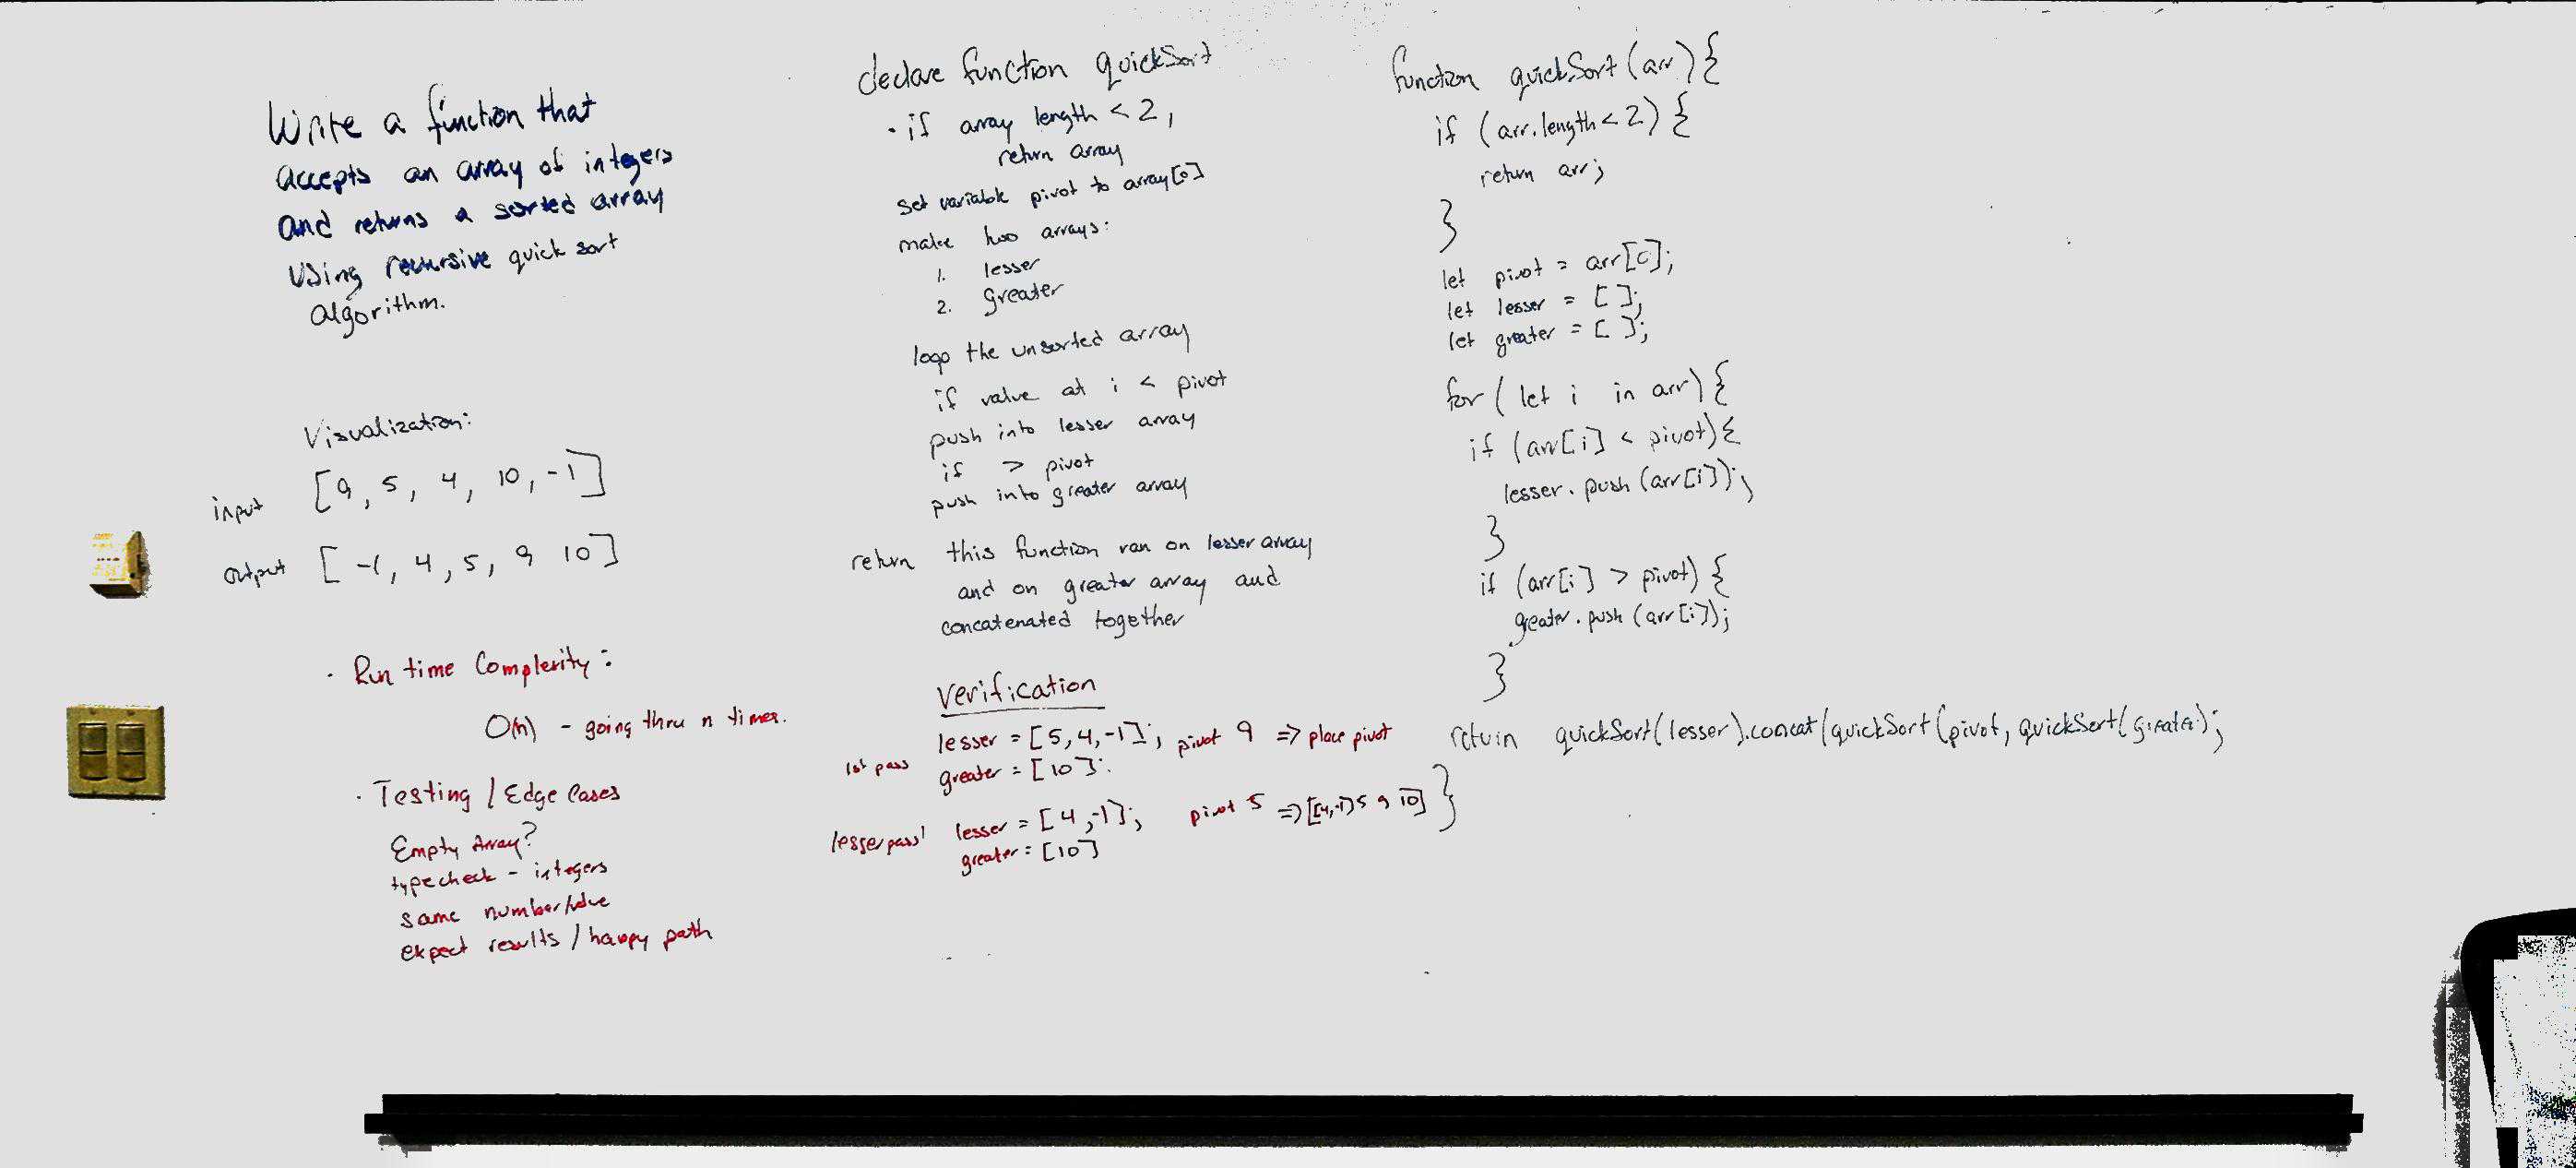 Write a function that
accepts an array of integers
and returns a sorted array
Using recursive quick sort
algorithm.
Visualization:
input [9, 5, 4, 10, -1]
output [-1, 4, 5, 9 10]
· Run time Complexity:
O(n) - going thru n times.
· Testing / Edge Cases
Empty Array?
typecheck - integers
same number/value
expect results / happy path
declare function quickSort
· if array length < 2,
return array
set variable pivot to array[0]
make two arrays:
1. lesser
2. greater
loop the unsorted array
if value at i < pivot
push into lesser array
if > pivot
push into greater array
return this function ran on lesser array
and on greater array and
concatenated together
Verification
1st pass lesser = [5, 4, -1]; pivot 9 => place pivot
greater = [10];
lesser pass lesser = [4, -1]; pivot 5 => [[4, -1] 5 9 10]
greater = [10]
function quickSort (arr) {
if (arr.length < 2) {
return arr;
}
let pivot = arr[0];
let lesser = [ ];
let greater = [ ];
for ( let i in arr) {
if (arr[i] < pivot) {
lesser.push (arr[i]);
}
if (arr[i] > pivot) {
greater.push (arr[i]);
}
return quickSort(lesser).concat(quickSort(pivot, quickSort(greater);
}